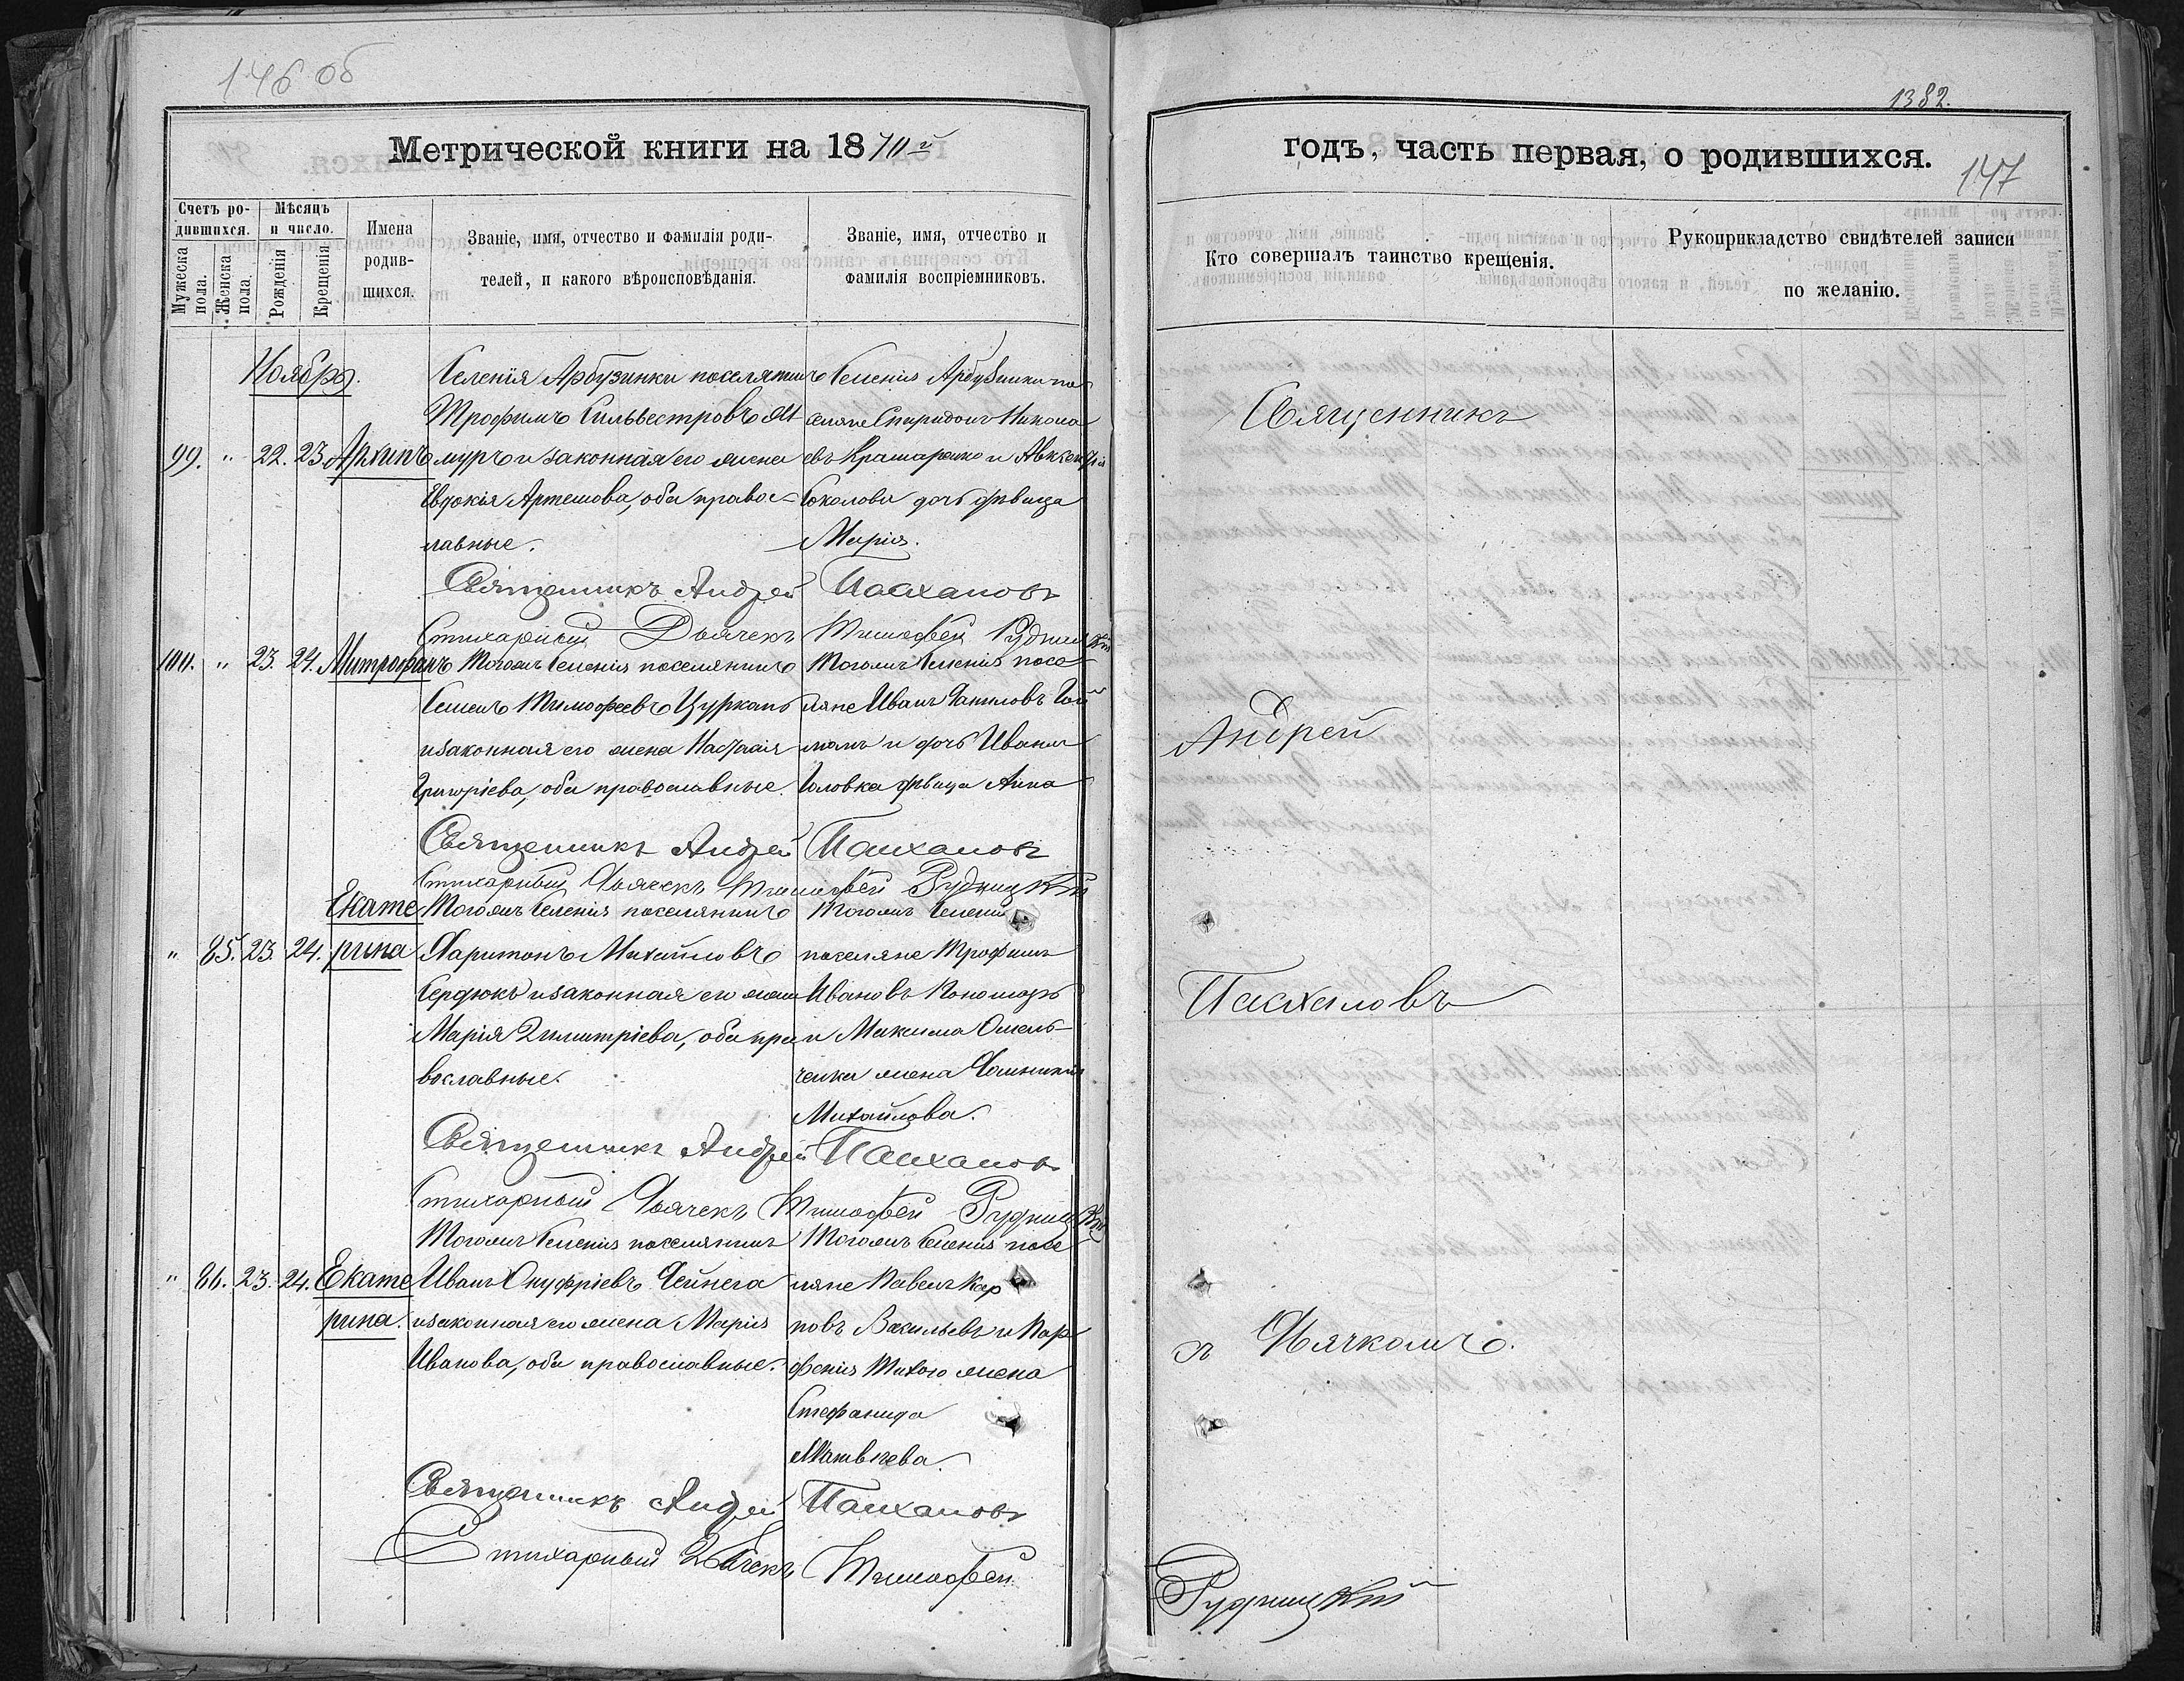 146 об
1382.
147
Метрической книги на 1870й
годъ, часть первая, о родившихся.
Счетъ ро-
дившихся.
Мужеска
пола.
Женска
пола
Мѣсяцъ
и число.
Рожденія
Крещенія
Имена
родив-
шихся.
Званіе, имя, отчество и фамилія роди-
телей, и какого вѣроисповѣданія.
Званіе, имя, отчество и
фамилія воспріемниковъ.
Кто совершалъ таинство крещенія.
Рукоприкладство свидѣтелей записи
по желанію.
Ноябрь.
99. " 22. 23. Архипъ
Селенія Арбузинки поселянинъ
Трофимъ Сильвестровъ
муръ и законная его жена
Евдокія Артемова, оба правос-
лавные.
Селенія Арбузинки по-
селяне Спиридонъ Никола
евъ Крамаренко и
Соколова дочь дѣвица
Марія.
Священникъ Андрей Пасхаловъ
Стихарный Дьячекъ Тимофей Рудницкій
100. " 23. 24. Митрофанъ
Тогожъ Селенія поселянинъ
Семенъ Тимофеевъ Цуркань
и законная его жена Настасія
Григоріева, оба православные.
Тогожъ Селенія посе
ляне Иванъ Даниловъ Гой
манъ и дочь Ивана
Головка дѣвица Анна
Священникъ Андрей Пасхаловъ
Стихарный Дьячекъ Тимофей Рудницкій
" 85. 23. 24. Екате
рина
Тогожъ Селенія поселянинъ
Харитонъ Михайловъ
Сердюкъ и законная его жена
Марія Димитріева, оба пра
вославные.
Тогожъ Селенія
поселяне Трофимъ
Ивановъ Кономарь
и Максима Омель-
ченка жена
Михайлова.
Священникъ Андрей Пасхаловъ
Стихарный Дьячекъ Тимофей Рудницкій
" 86. 23. 24. Екате
рина.
Тогожъ Селенія поселянинъ
Иванъ Онуфріевъ Чейнега
и законная его жена Марія
Иванова, оба православные.
Тогожъ Селенія посе
ляне Павелъ Кар
повъ Васильевъ и Пар
фенія Тихого жена
Стефанида
Матвѣева.
Священникъ Андрей Пасхаловъ
Стихарный Дьячекъ Тимофей
Священникъ
Андрей
Пасхаловъ
съ Дьячкомъ.
Рудницкій